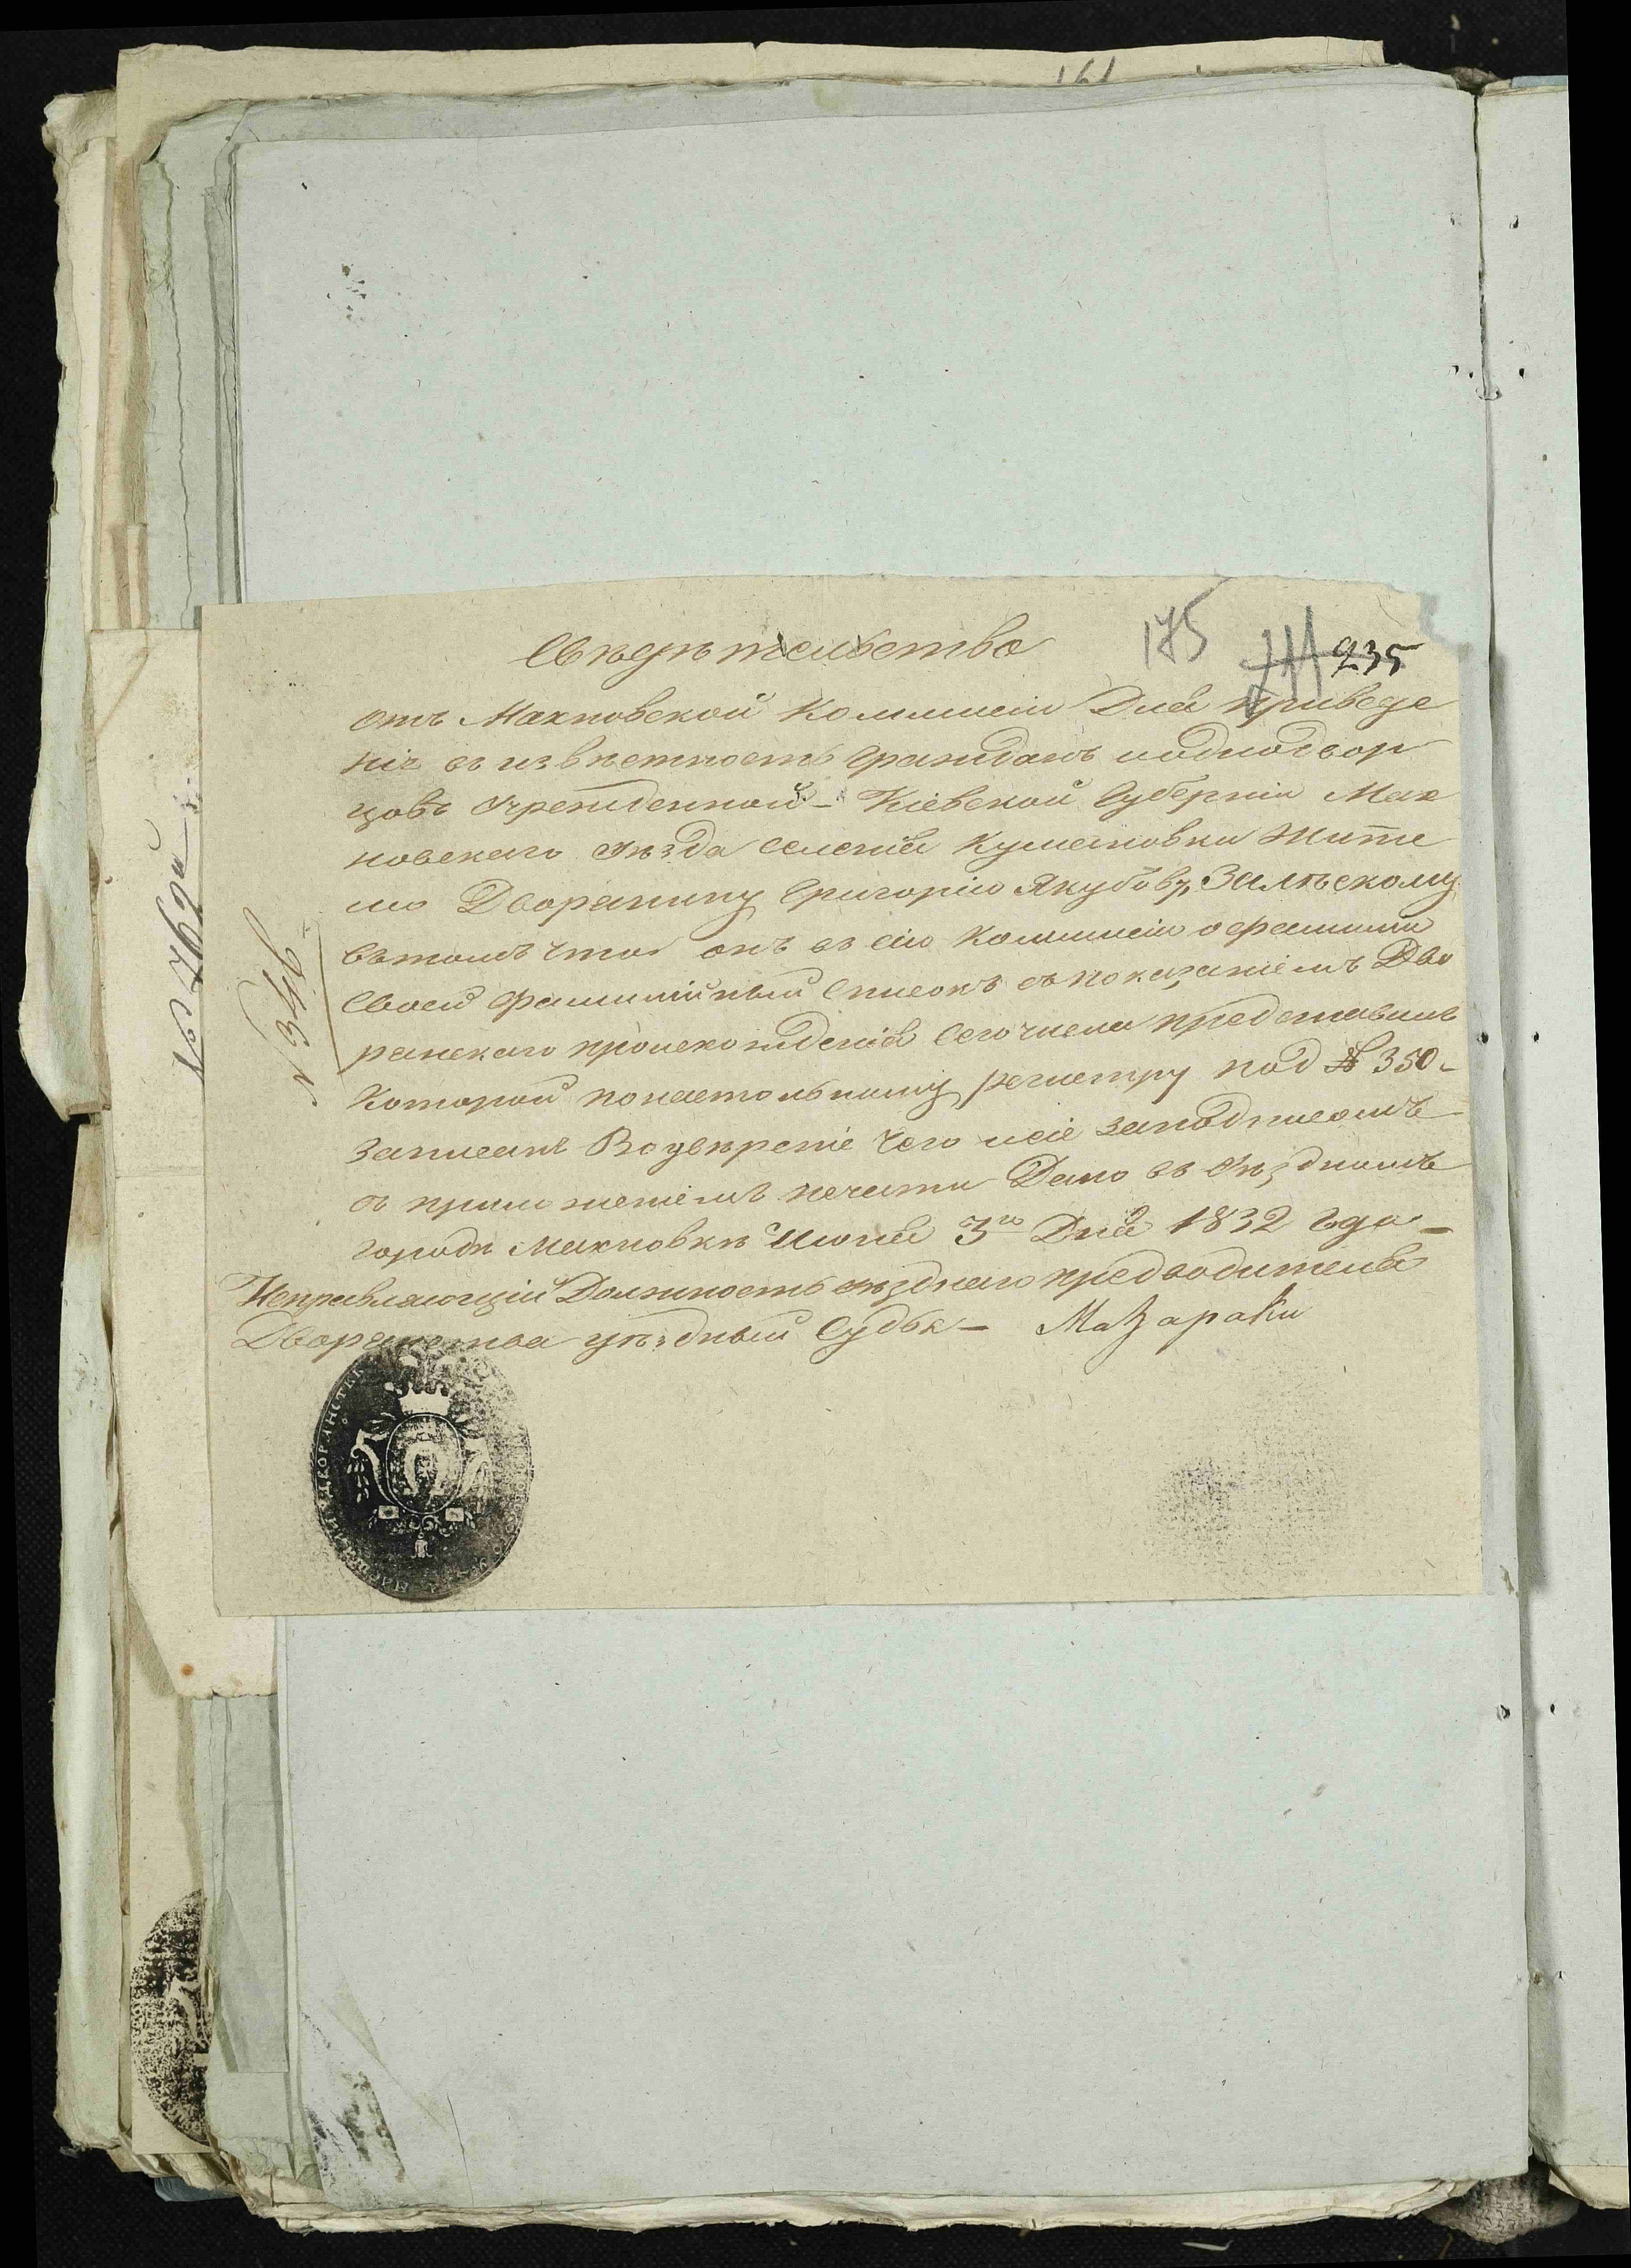 161
175
235
Свѣдѣтельство
отъ Махновской Коммисіи Для приведе
нія въ извѣстность Гражданъ иоднодвор
цовъ Учрежденной - Кіевской Губерніи Мах
новскаго Уѣзда Селенія Кумановки Жите
лю Дворянину Григорію Якубову Залѣскому
Въ томъ что онъ въ сію Коммисію о фамиліи
Своей Фамилійный Списокъ съ показаніемъ Дво
рянскаго происхожденія Сего числа представилъ
Которой понастольному регистру под № 350 -
записанъ Воувѣреніе Чего исіе заподписомъ
съ приложеніемъ печати Дано въ Уѣздномъ
городѣ Махновкѣ Июня 3го Дня 1832 Года -
Исправляющій Должность уѣзднаго предводителя
Дворянства уѣздный Судья - Мазараки
N 346